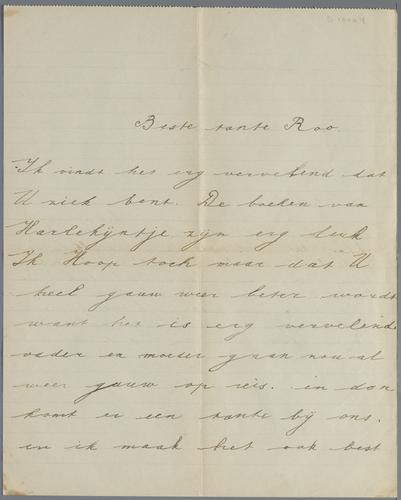 Beste tante Roo.
Ik vindt het erg vervelend dat
U ziek bent. De boeken van
Harlekijntje zijn erg leuk
Ik Hoop toch maar dat U
heel gauw weer beter wordt
want het is erg vervelend
vader en moeder gaan nou al
weer gauw op reis. in dan
komt er een tante bij ons.
en ik maak het ook best